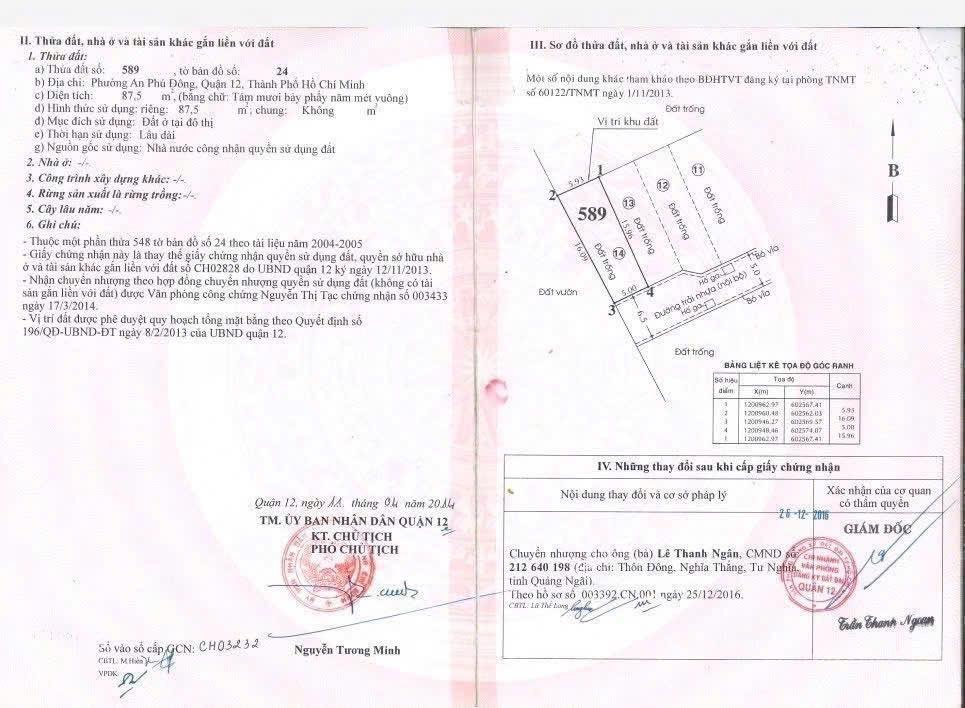 II. Thửa đất, nhà ở và tài sản khác gắn liền với đất
1. Thửa đất:
a) Thửa đất số: 589 , tờ bản đồ số: 24
b) Địa chỉ: Phường An Phú Đông, Quận 12, Thành Phố Hồ Chí Minh
c) Diện tích: 87,5 m², (bằng chữ: Tám mươi bảy phẩy năm mét vuông)
d) Hình thức sử dụng: riêng: 87,5 m², chung: Không m²
đ) Mục đích sử dụng: Đất ở tại đô thị
e) Thời hạn sử dụng: Lâu dài
g) Nguồn gốc sử dụng: Nhà nước công nhận quyền sử dụng đất
2. Nhà ở: -/-
3. Công trình xây dựng khác: -/-
4. Rừng sản xuất là rừng trồng: -/-
5. Cây lâu năm: -/-
6. Ghi chú:
- Thuộc một phần thửa 548 tờ bản đồ số 24 theo tài liệu năm 2004-2005
- Giấy chứng nhận này là thay thế giấy chứng nhận quyền sử dụng đất, quyền sở hữu nhà
ở và tài sản khác gắn liền với đất số CH02828 do UBND quận 12 ký ngày 12/11/2013.
- Nhận chuyển nhượng theo hợp đồng chuyển nhượng quyền sử dụng đất (không có tài
sản gắn liền với đất) được Văn phòng công chứng Nguyễn Thị Tạc chứng nhận số 003433
ngày 17/3/2014.
- Vị trí đất được phê duyệt quy hoạch tổng mặt bằng theo Quyết định số
196/QĐ-UBND-ĐT ngày 8/2/2013 của UBND quận 12.
Quận 12, ngày 11 tháng 04 năm 2014
TM. ỦY BAN NHÂN DÂN QUẬN 12
KT. CHỦ TỊCH
PHÓ CHỦ TỊCH
Nguyễn Tương Minh
Số vào sổ cấp GCN: CH03232
CBTL: M.Hiền
VPĐK
III. Sơ đồ thửa đất, nhà ở và tài sản khác gắn liền với đất
Một số nội dung khác tham khảo theo BĐHTVT đăng ký tại phòng TNMT
số 60122/TNMT ngày 1/11/2013.
Đất trống
Vị trí khu đất
B
1
5.93
2
589
11
12
13
14
Đất trống
Đất trống
Đất trống
Đất trống
15.96
16.09
5.00
4
3
6.5
5.0
Hố ga
Bó vỉa
Đường trải nhựa (nội bộ)
Hố ga
Bó vỉa
Đất vườn
Đất trống
BẢNG LIỆT KÊ TỌA ĐỘ GÓC RANH
Số hiệu điểm Tọa độ Cạnh
X(m) Y(m)
1 1200962.97 602567.41
5.93
2 1200960.48 602562.03
16.09
3 1200946.27 602569.57
5.00
4 1200948.46 602574.07
15.96
1 1200962.97 602567.41
IV. Những thay đổi sau khi cấp giấy chứng nhận
Nội dung thay đổi và cơ sở pháp lý
Xác nhận của cơ quan
có thẩm quyền
26-12-2016
GIÁM ĐỐC
Chuyển nhượng cho ông (bà) Lê Thanh Ngân, CMND số
212 640 198 (địa chỉ: Thôn Đông, Nghĩa Thắng, Tư Nghĩa,
tỉnh Quảng Ngãi).
Theo hồ sơ số 003392.CN.001 ngày 25/12/2016.
CBTL: Lữ Thế Long
CHI NHÁNH
VĂN PHÒNG
ĐĂNG KÝ ĐẤT ĐAI
QUẬN 12
Trần Thanh Ngoan